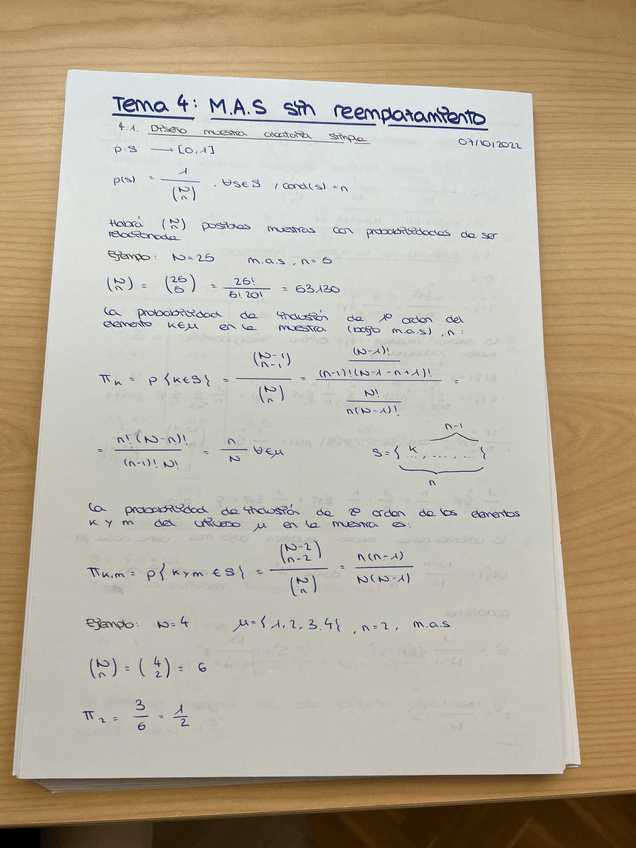 Tema 4: M.A.S sin reemplazamiento
4.1. Diseño muestra aleatoria simple
07/10/2022
p: S → [0,1]
p(s) = 1 / (N n) , ∀s∈S , card(s) = n
Habrá (N n) posibles muestras con probabilidades de ser
relacionada
Ejemplo: N=25 m.a.s, n=5
(N n) = (25 5) = 25! / 5! 20! = 53130
La probabilidad de inclusión de 1º orden del
elemento K∈μ en la muestra (bajo m.a.s), n:
π_K = P{K∈S} = (N-1 n-1) / (N n) = (N-1)! / (n-1)!(N-1-n+1)! / N! / n(N-1)! =
= n! (N-n)! / (n-1)! N! = n / N ∀∈μ S={ K, ..., ... } n-1 n
La probabilidad de inclusión de 2º orden de los elementos
K y m del universo μ en la muestra es:
π_K,m = P{K y m ∈ S} = (N-2 n-2) / (N n) = n(n-1) / N(N-1)
Ejemplo: N=4 μ={1,2,3,4}, n=2, m.a.s
(N n) = (4 2) = 6
π_2 = 3/6 = 1/2